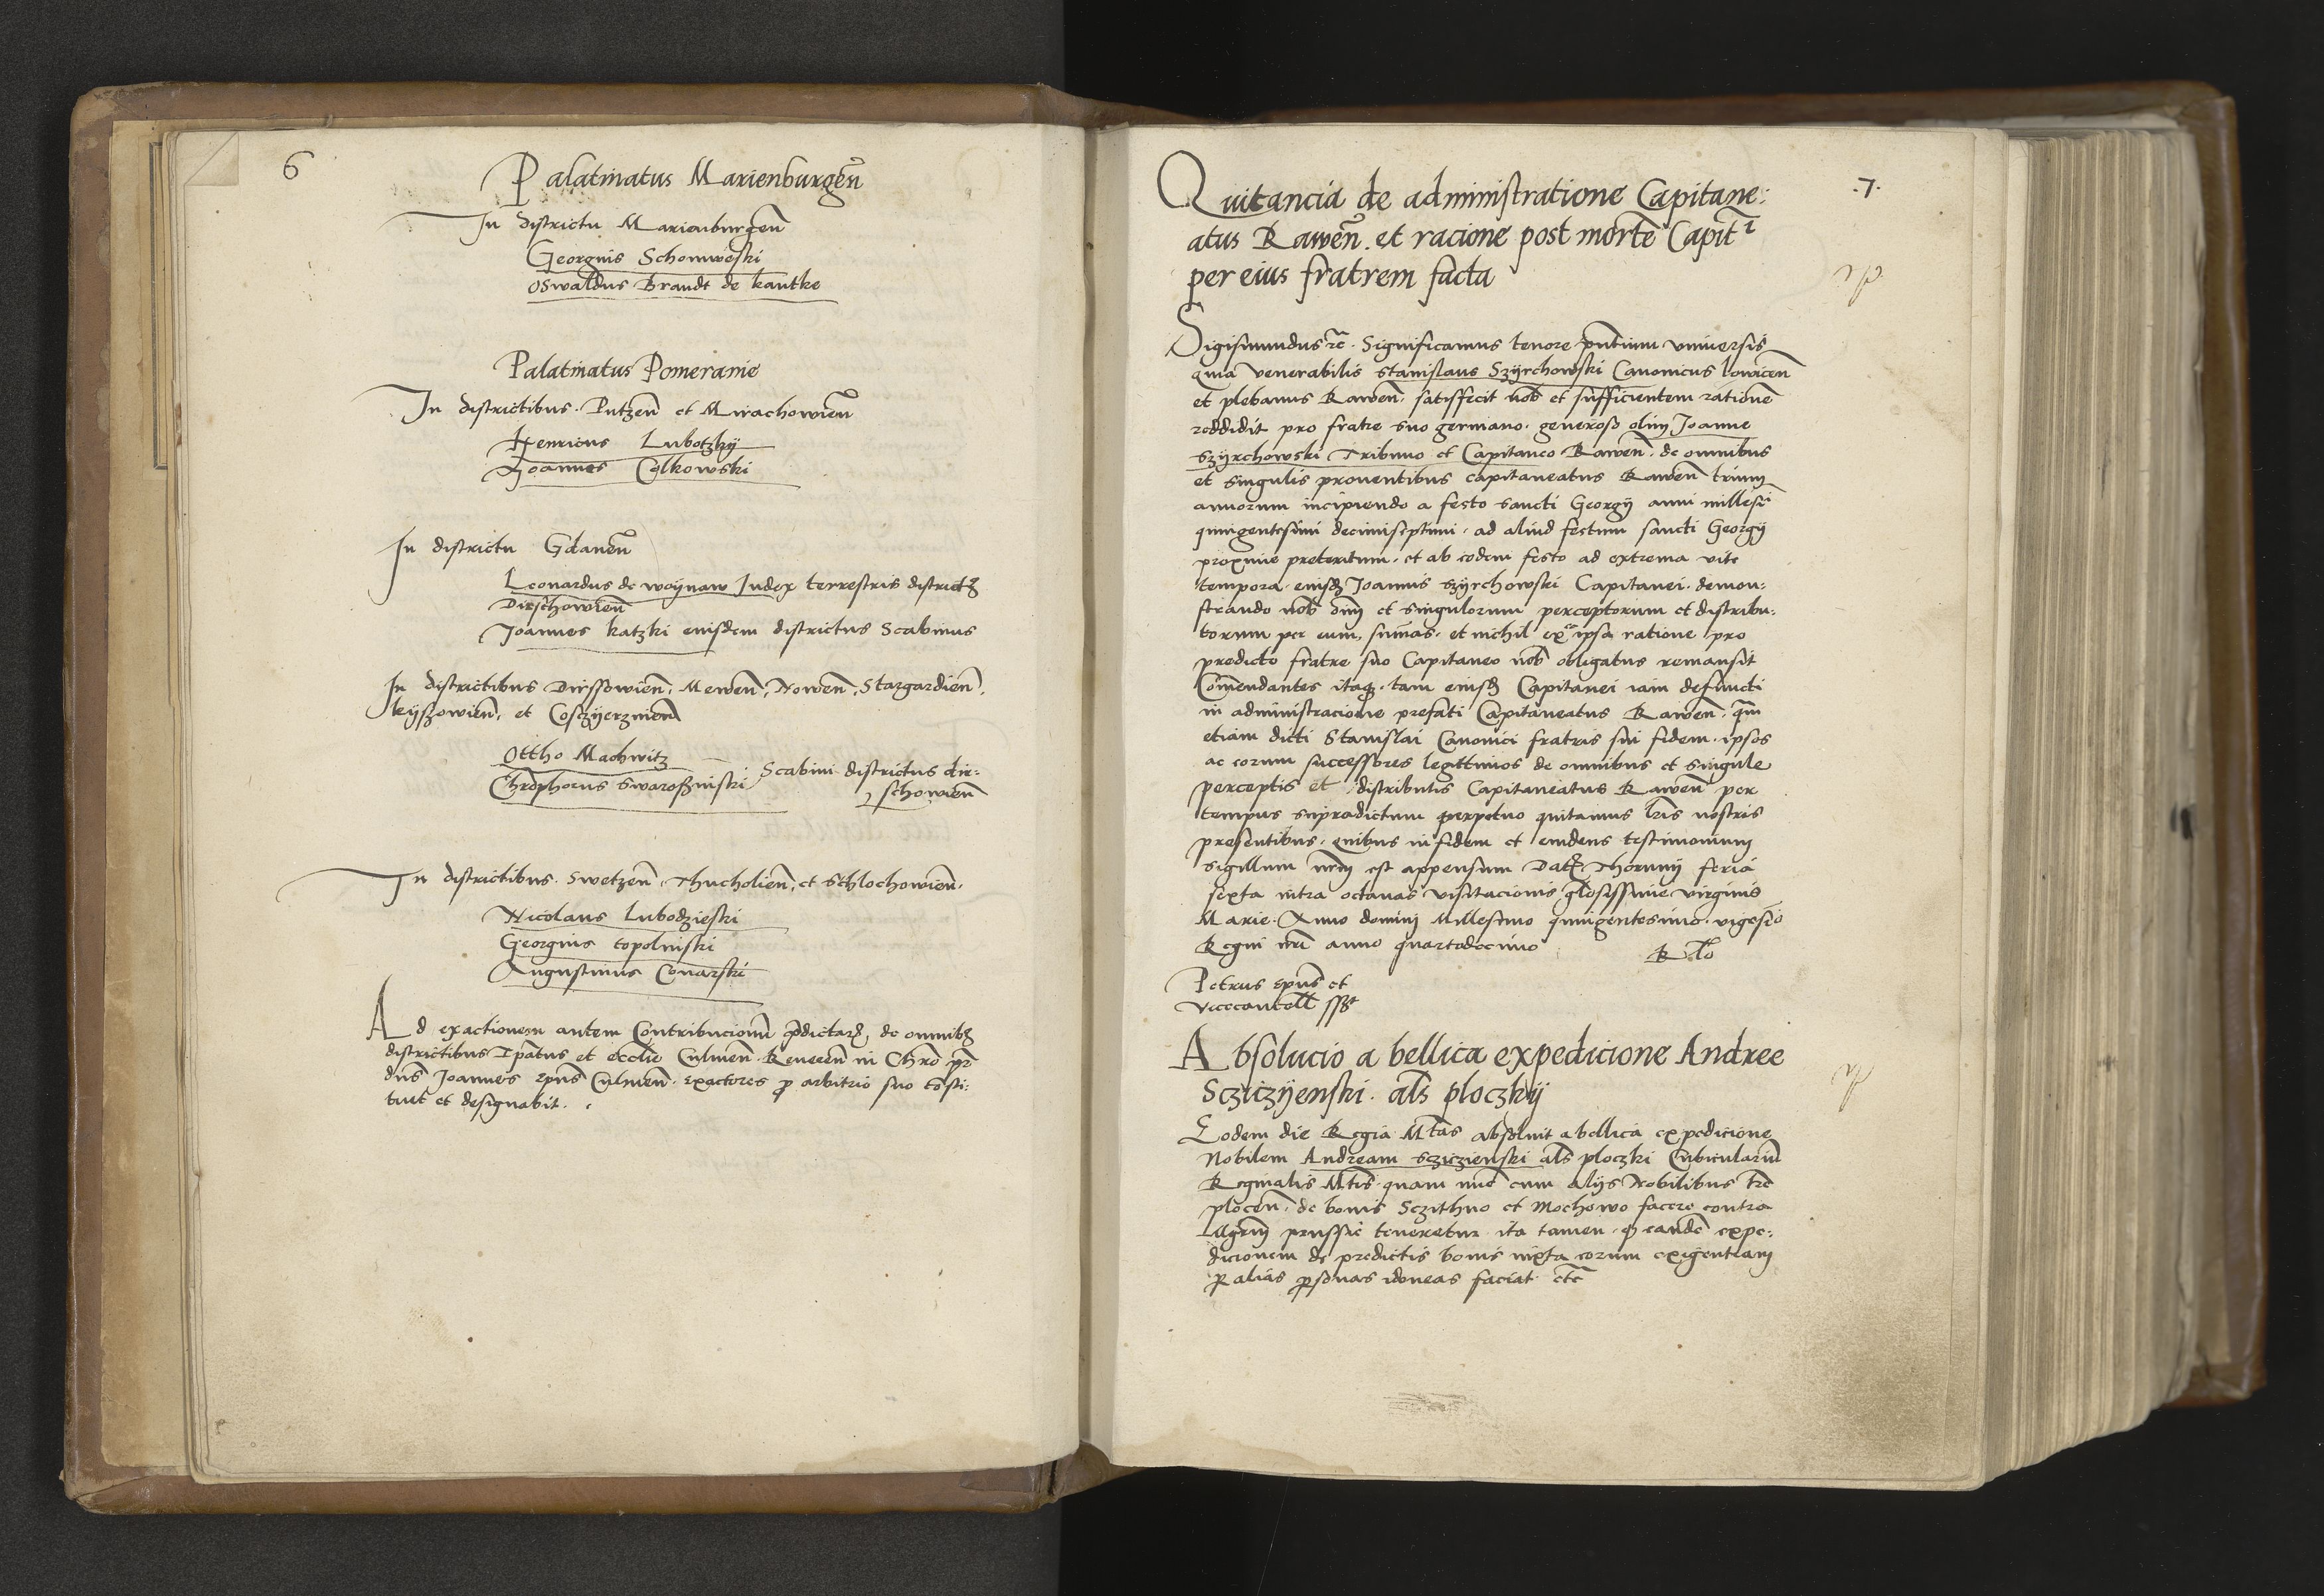 6
Palatinatus Marienburgen̄
In districtu Marienburgen̄
Georgius Schonweski
Oswaldus Brandt de kantke
Palatinatus Pomeranie
In districtibus. Putzen̄ et Mirachowien̄
Henricus Lubotzky
Joannes Colkowski
In districtu Gdanen̄
Leonardus de woynaw Judex terrestris district9
Dirschowien̄
Joannes katzki eiusdem districtus Scabinus
In districtibus Dirssowien̄, Mewen̄, Nowen̄, Stargardien̄,
kyszowien̄, et Cosczyerznien̄
Ottho Machwitz
Chrophorus Swaroszinski
Scabini districtus dir:
schowien̄
In districtibus. Swetzen̄, Thucholien̄, et Schlochowien̄.
Nicolaus Lubodzieski
Georgius topolniski
Augustinus Conarski
Ad exactionem autem Contribucionū p̄dictarꝫ, de omnibꝫ
districtibus Ep̄atus et eccl̄ie Culmen̄. Reueren̄ in Chr̄o pr̄
dn̄s Joannes Ep̄us Culmen̄. exactores p̄ arbitrio suo cōsti:
tuit et designabit.
.7.
Quitancia de administratione Capitane:
atus Rawen̄. et racione post mortē Capit̄ı
per eius fratrem facta
Sigismundus ꝛc̄. Significamus tenore pn̄tium vniuersis
quia venerabilis Stanislaus Szyrchowski Canonicus lovicen̄
et plebanus Rawen̄. satisfecit nob̄ et sufficientem rationē
reddidit pro fratre suo germano. generoso olim Joanne
Szyrchowski Tribuno et Capitaneo Rawen̄. de omnibus
et singulis prouentibus capitaneatus Rawen̄ trium
annorum incipiendo a festo sancti Georgij anni millesi
quingentesimi decimiseptimi. ad aliud festum sancti Georgij
proxime preteritum. et ab eodem festo ad extrema vite
tempora eiusdꝫ Joannis Szyrchowski Capitanei. demon:
strando nob̄ oīm et singulorum perceptorum et distribu:
torum per eum, sum̄as. et nichil ex ipsa ratione pro
predicto fratre suo Capitaneo nob̄ obligatus remansit
Com̄endantes itaqꝫ. tam eiusdꝫ Capitanei iam defuncti
in administracione prefati Capitaneatus Rawen̄. qm̄
etiam dicti Stanislai Canonici fratris sui fidem. ipsos
ac eorum successores legittimos de omnibus et singulꝭ
perceptis et distributis Capitaneatus Rawen̄ per
tempus supradictum perpetuo quitamus lr̄is nostris
presentibus. quibus in fidem et euidens testimonium
sigillum nr̄m est appensum Datꝫ Thorunij feria
sexta intra octauas visitacionis gl̄osissime virginis
Marie. Anno domini Millesimo quingentesimo. vigesīo
Regni nr̄i anno quartodecimo
R. t̄lo
Petrus ep̄us et
Vicecancell̄ sszt
Absolucio a bellica expedicione Andree
Scziczyenski. al̄s ploczky
Eodem die Regia M̄tas absoluit a bellica expedicione
Nobilem Andream sziczienski al̄s ploczki Cubiculariū
Reginalis M̄tis. quam nūc cum alijs Nobilibus trē
plocen̄. de bonis Sczithno et Mochowo facere contra
Mgr̄m prussie teneretur. ita tamen. qꝫ eandē expe:
dicionem de predictis bonis iuxta eorum exigentiam
ꝑ alias ꝑsonas idoneas faciat etc̄